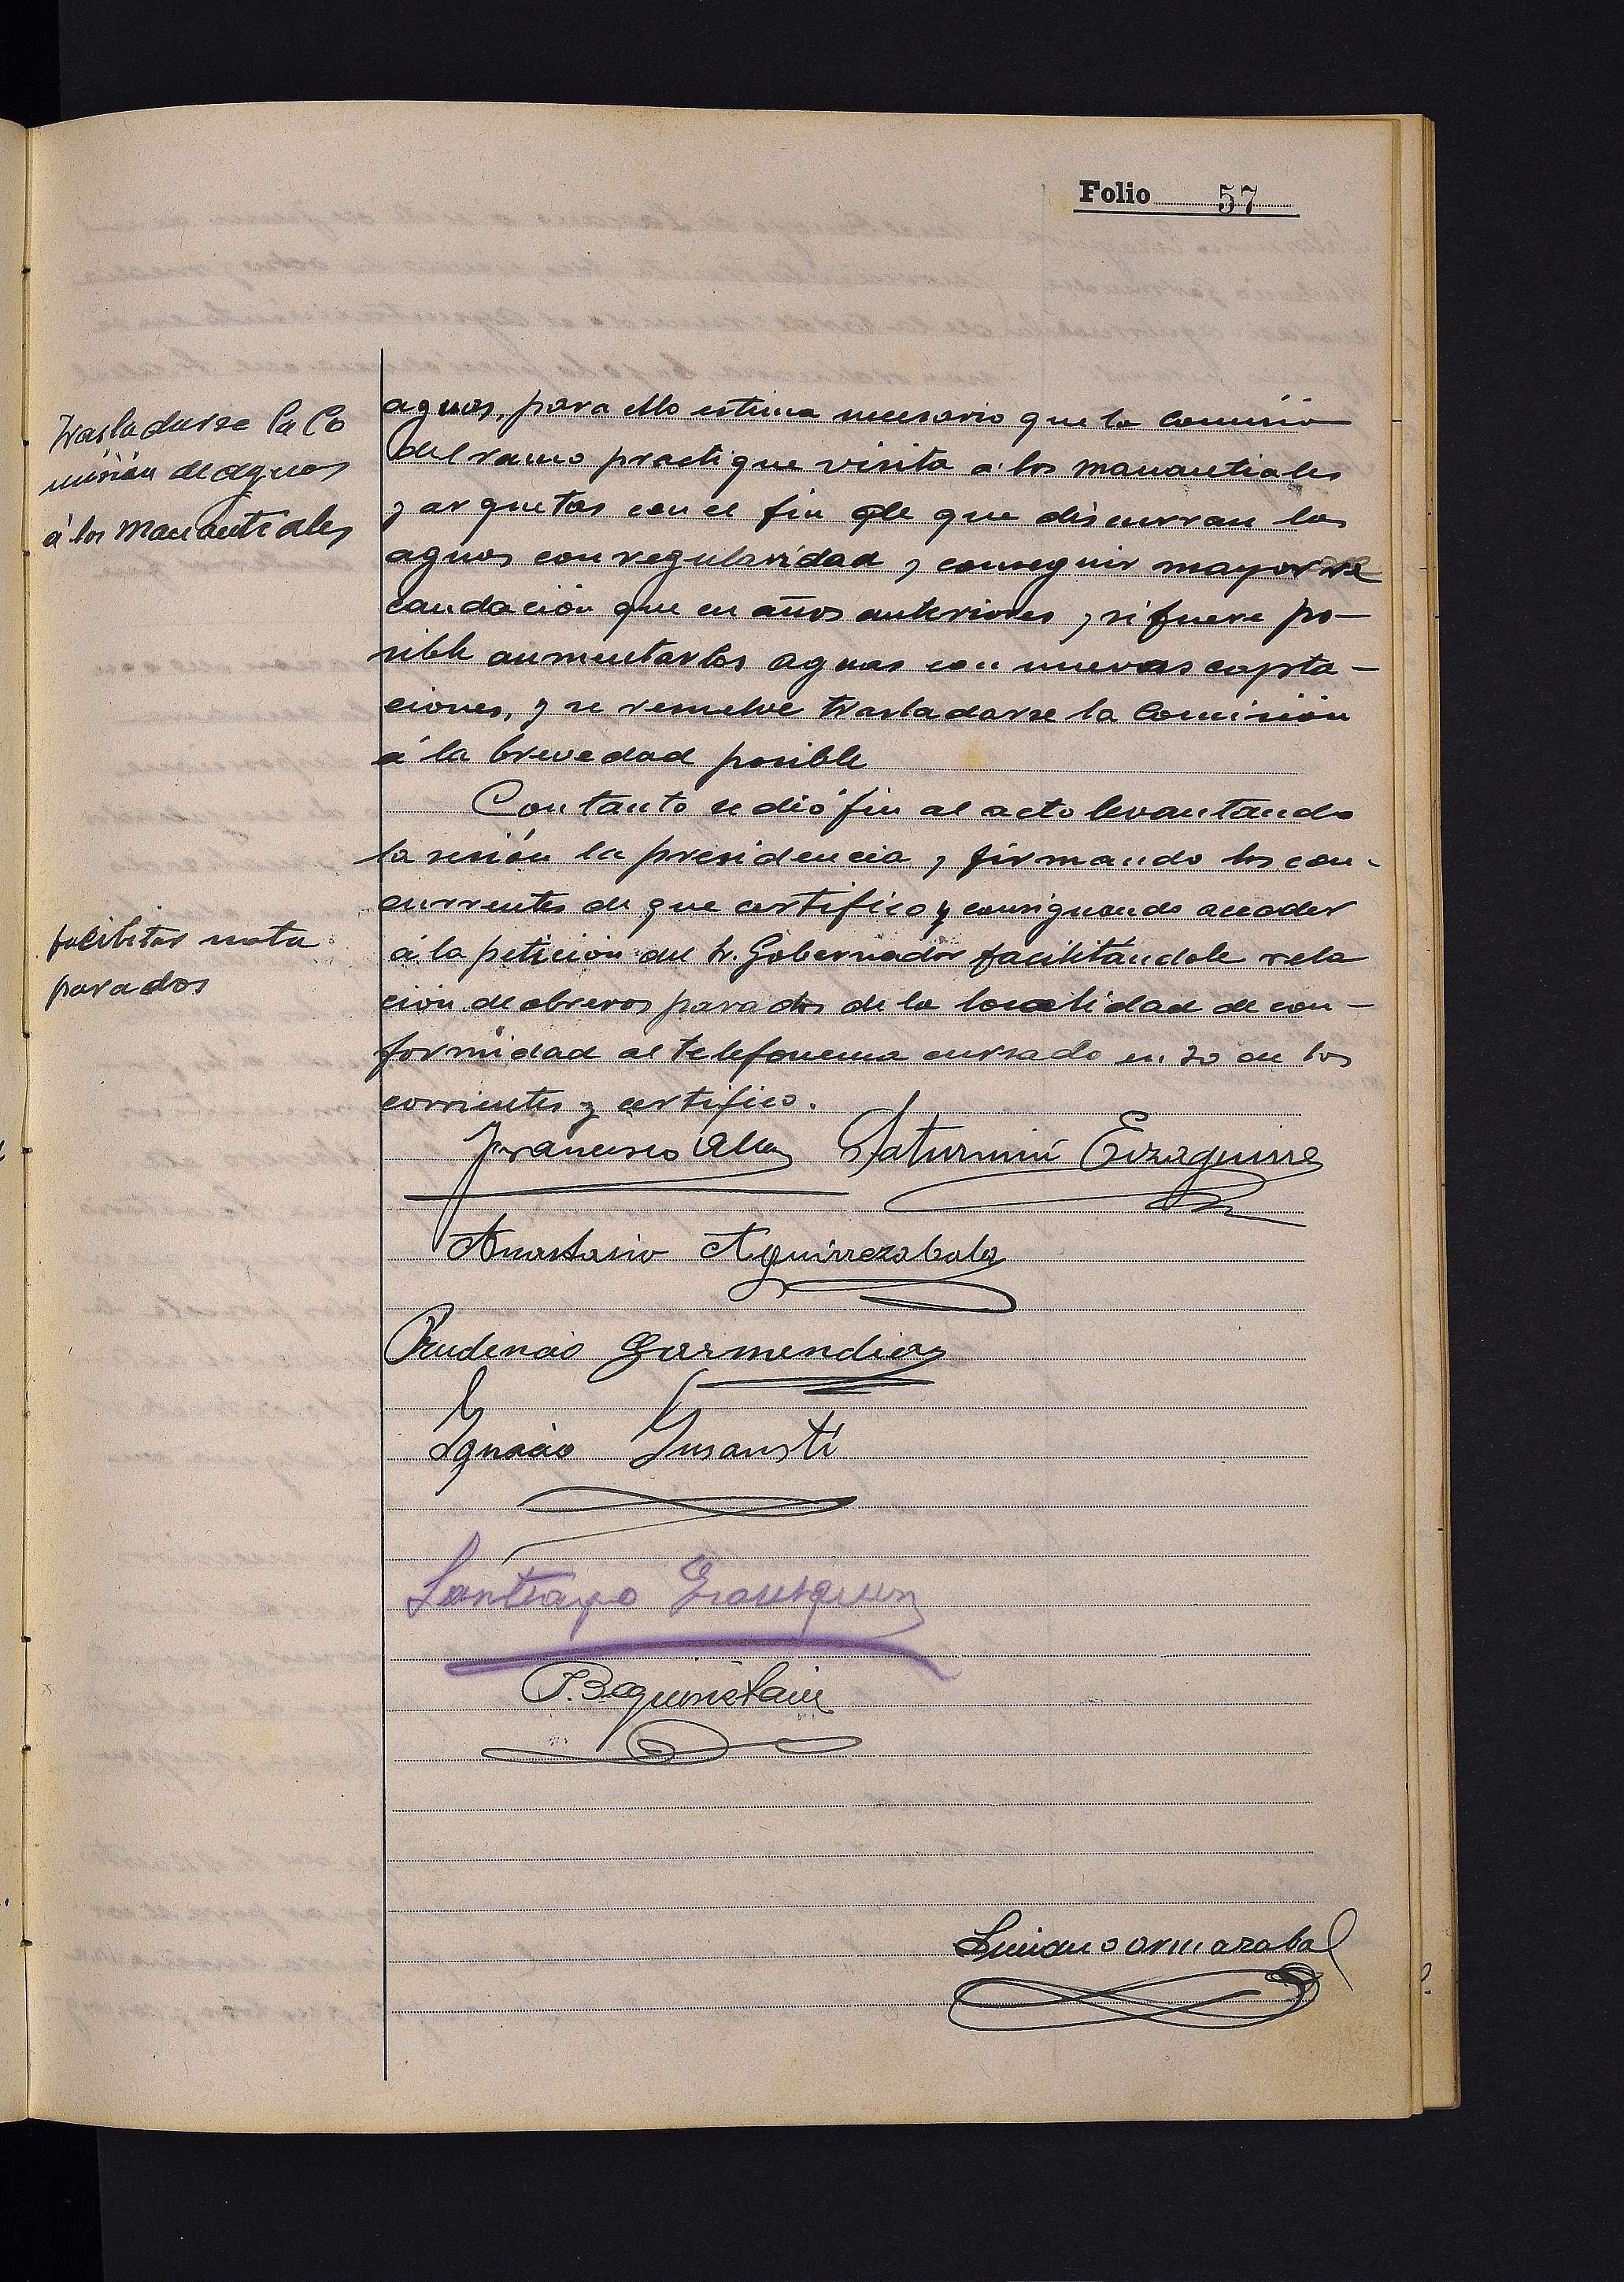 Folio 57
Trasladarse la Co
misión de aguas
á los manantiales
aguas, para ello estima necesario que la comisión
del ramo practique visita a los manantiales
y arquetas con el fin de que discurran las
aguas con regularidad y conseguir mayor re
caudación que en años anteriores y si fuere po-
sible aumentar las aguas con nuevas capta-
ciones, y se resuelve trasladarse la Comisión
á la brevedad posible
Con tanto se dió fin al acto levantando
la sesión la presidencia y firmando los con-
currentes de que certifico y consignando acceder
facilitar nota
parados
á la petición del Sr. Gobernador facilitándole rela
ción de obreros parados de la localidad de con-
formidad al telefonema cursado en 20 de los
corrientes y certifico.
Francisco Saturnino Eizaguirre
Anastasio Aguirrezabala
Prudencio Garmendia
Ignacio Insausti
Santiago
P. Beguiristain
Luciano Ormazabal